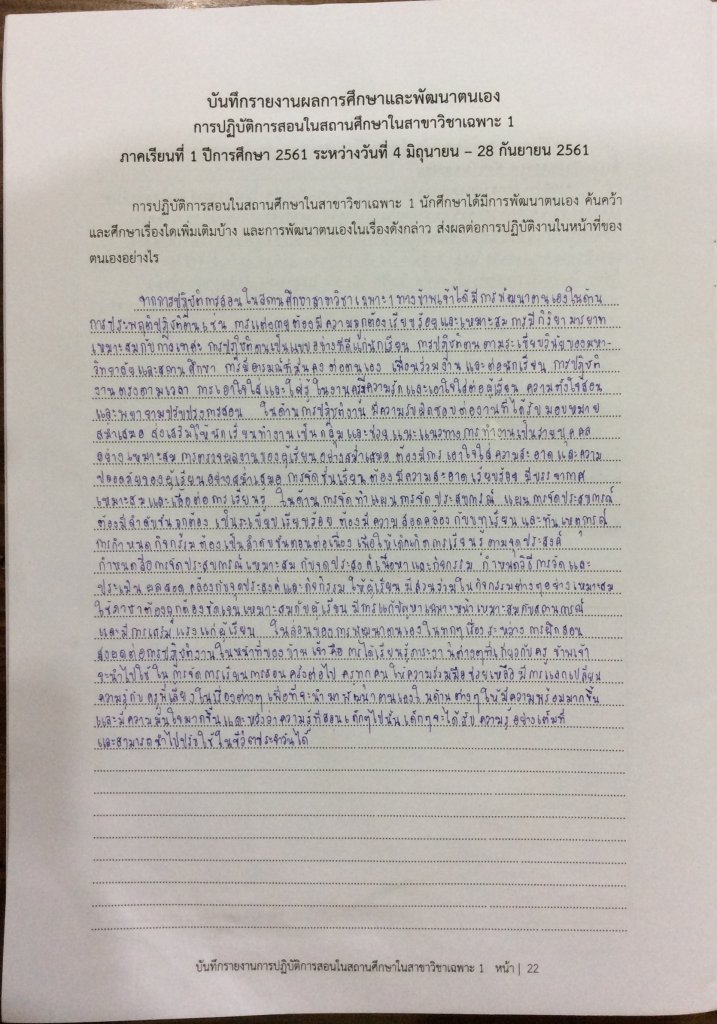 บันทึกรายงานผลการศึกษาและพัฒนาตนเอง
การปฏิบัติการสอนในสถานศึกษาในสาขาวิชาเฉพาะ 1
ภาคเรียนที่ 1 ปีการศึกษา 2561 ระหว่างวันที่ 4 มิถุนายน – 28 กันยายน 2561
การปฏิบัติการสอนในสถานศึกษาในสาขาวิชาเฉพาะ 1 นักศึกษาได้มีการพัฒนาตนเอง ค้นคว้า
และศึกษาเรื่องใดเพิ่มเติมบ้าง และการพัฒนาตนเองในเรื่องดังกล่าว ส่งผลต่อการปฏิบัติงานในหน้าที่ของ
ตนเองอย่างไร
จากการปฏิบัติการสอนในสถานศึกษาสาขาวิชาเฉพาะ 1 ทางข้าพเจ้าได้มีการพัฒนาตนเองในด้าน
การประพฤติปฏิบัติตน เช่น การแต่งกายต้องมีความถูกต้องเรียบร้อยและเหมาะสม การมีกิริยามารยาท
เหมาะสมกับกาลเทศะ การปฏิบัติตนเป็นแบบอย่างที่ดีแก่นักเรียน การปฏิบัติตนตามระเบียบวินัยของมหา-
วิทยาลัยและสถานศึกษา การมีอารมณ์ที่มั่นคงต่อตนเอง เพื่อนร่วมงาน และต่อนักเรียน การปฏิบัติ
งานตรงตามเวลา การเอาใจใส่และใฝ่รู้ในงานครูมีความรักและเอาใจใส่ต่อผู้เรียน ความตั้งใจสอน
และพยายามปรับปรุงการสอน ในด้านการปฏิบัติงาน มีความรับผิดชอบต่องานที่ได้รับมอบหมาย
สม่ำเสมอ ส่งเสริมให้นักเรียนทำงานเป็นกลุ่ม และช่วยแนะแนวทางการทำงานเป็นรายบุคคล
อย่างเหมาะสม การตรวจผลงานของผู้เรียนอย่างสม่ำเสมอ ต้องมีการเอาใจใส่ความสะอาดและความ
ปลอดภัยของผู้เรียนอย่างสม่ำเสมอ การจัดชั้นเรียนต้องมีความสะอาด เรียบร้อย มีบรรยากาศ
เหมาะสมและเอื้อต่อการเรียนรู้ ในด้านการจัดทำแผนการจัดประสบการณ์ แผนการจัดประสบการณ์
ต้องมีลำดับขั้นถูกต้อง เป็นระเบียบเรียบร้อย ต้องมีความสอดคล้องกับบทเรียนและทันเหตุการณ์
การกำหนดกิจกรรมต้องเป็นลำดับขั้นตอนต่อเนื่อง เพื่อให้เด็กเกิดการเรียนรู้ตามจุดประสงค์
กำหนดสื่อการจัดประสบการณ์เหมาะสมกับจุดประสงค์ เนื้อหาและกิจกรรม กำหนดวิธีการวัดและ
ประเมินผลสอดคล้องกับจุดประสงค์และกิจกรรม ให้ผู้เรียนมีส่วนร่วมในกิจกรรมต่างๆอย่างเหมาะสม
ใช้ภาษาต้องถูกต้องชัดเจนเหมาะสมกับผู้เรียน มีการแก้ปัญหาเฉพาะหน้าเหมาะสมกับสถานการณ์
และมีการเสริมแรงแก่ผู้เรียน ในส่วนของการพัฒนาตนเองในทุกๆเรื่องระหว่างการฝึกสอน
ส่งผลต่อการปฏิบัติงานในหน้าที่ของข้าพเจ้าคือ การได้เรียนรู้ภาระงานต่างๆที่เกี่ยวกับครู ข้าพเจ้า
จะนำไปใช้ในการจัดการเรียนการสอนครั้งต่อไป ครูทุกคนให้ความร่วมมือช่วยเหลือ มีการแลกเปลี่ยน
ความรู้กับครูพี่เลี้ยงในเรื่องต่างๆ เพื่อที่จะนำมาพัฒนาตนเองในด้านต่างๆให้มีความพร้อมมากขึ้น
และมีความมั่นใจมากขึ้น และหวังว่าความรู้ที่สอนเด็กๆไปนั้น เด็กๆจะได้รับความรู้อย่างเต็มที่
และสามารถนำไปปรับใช้ในชีวิตประจำวันได้
บันทึกรายงานการปฏิบัติการสอนในสถานศึกษาในสาขาวิชาเฉพาะ 1 หน้า | 22